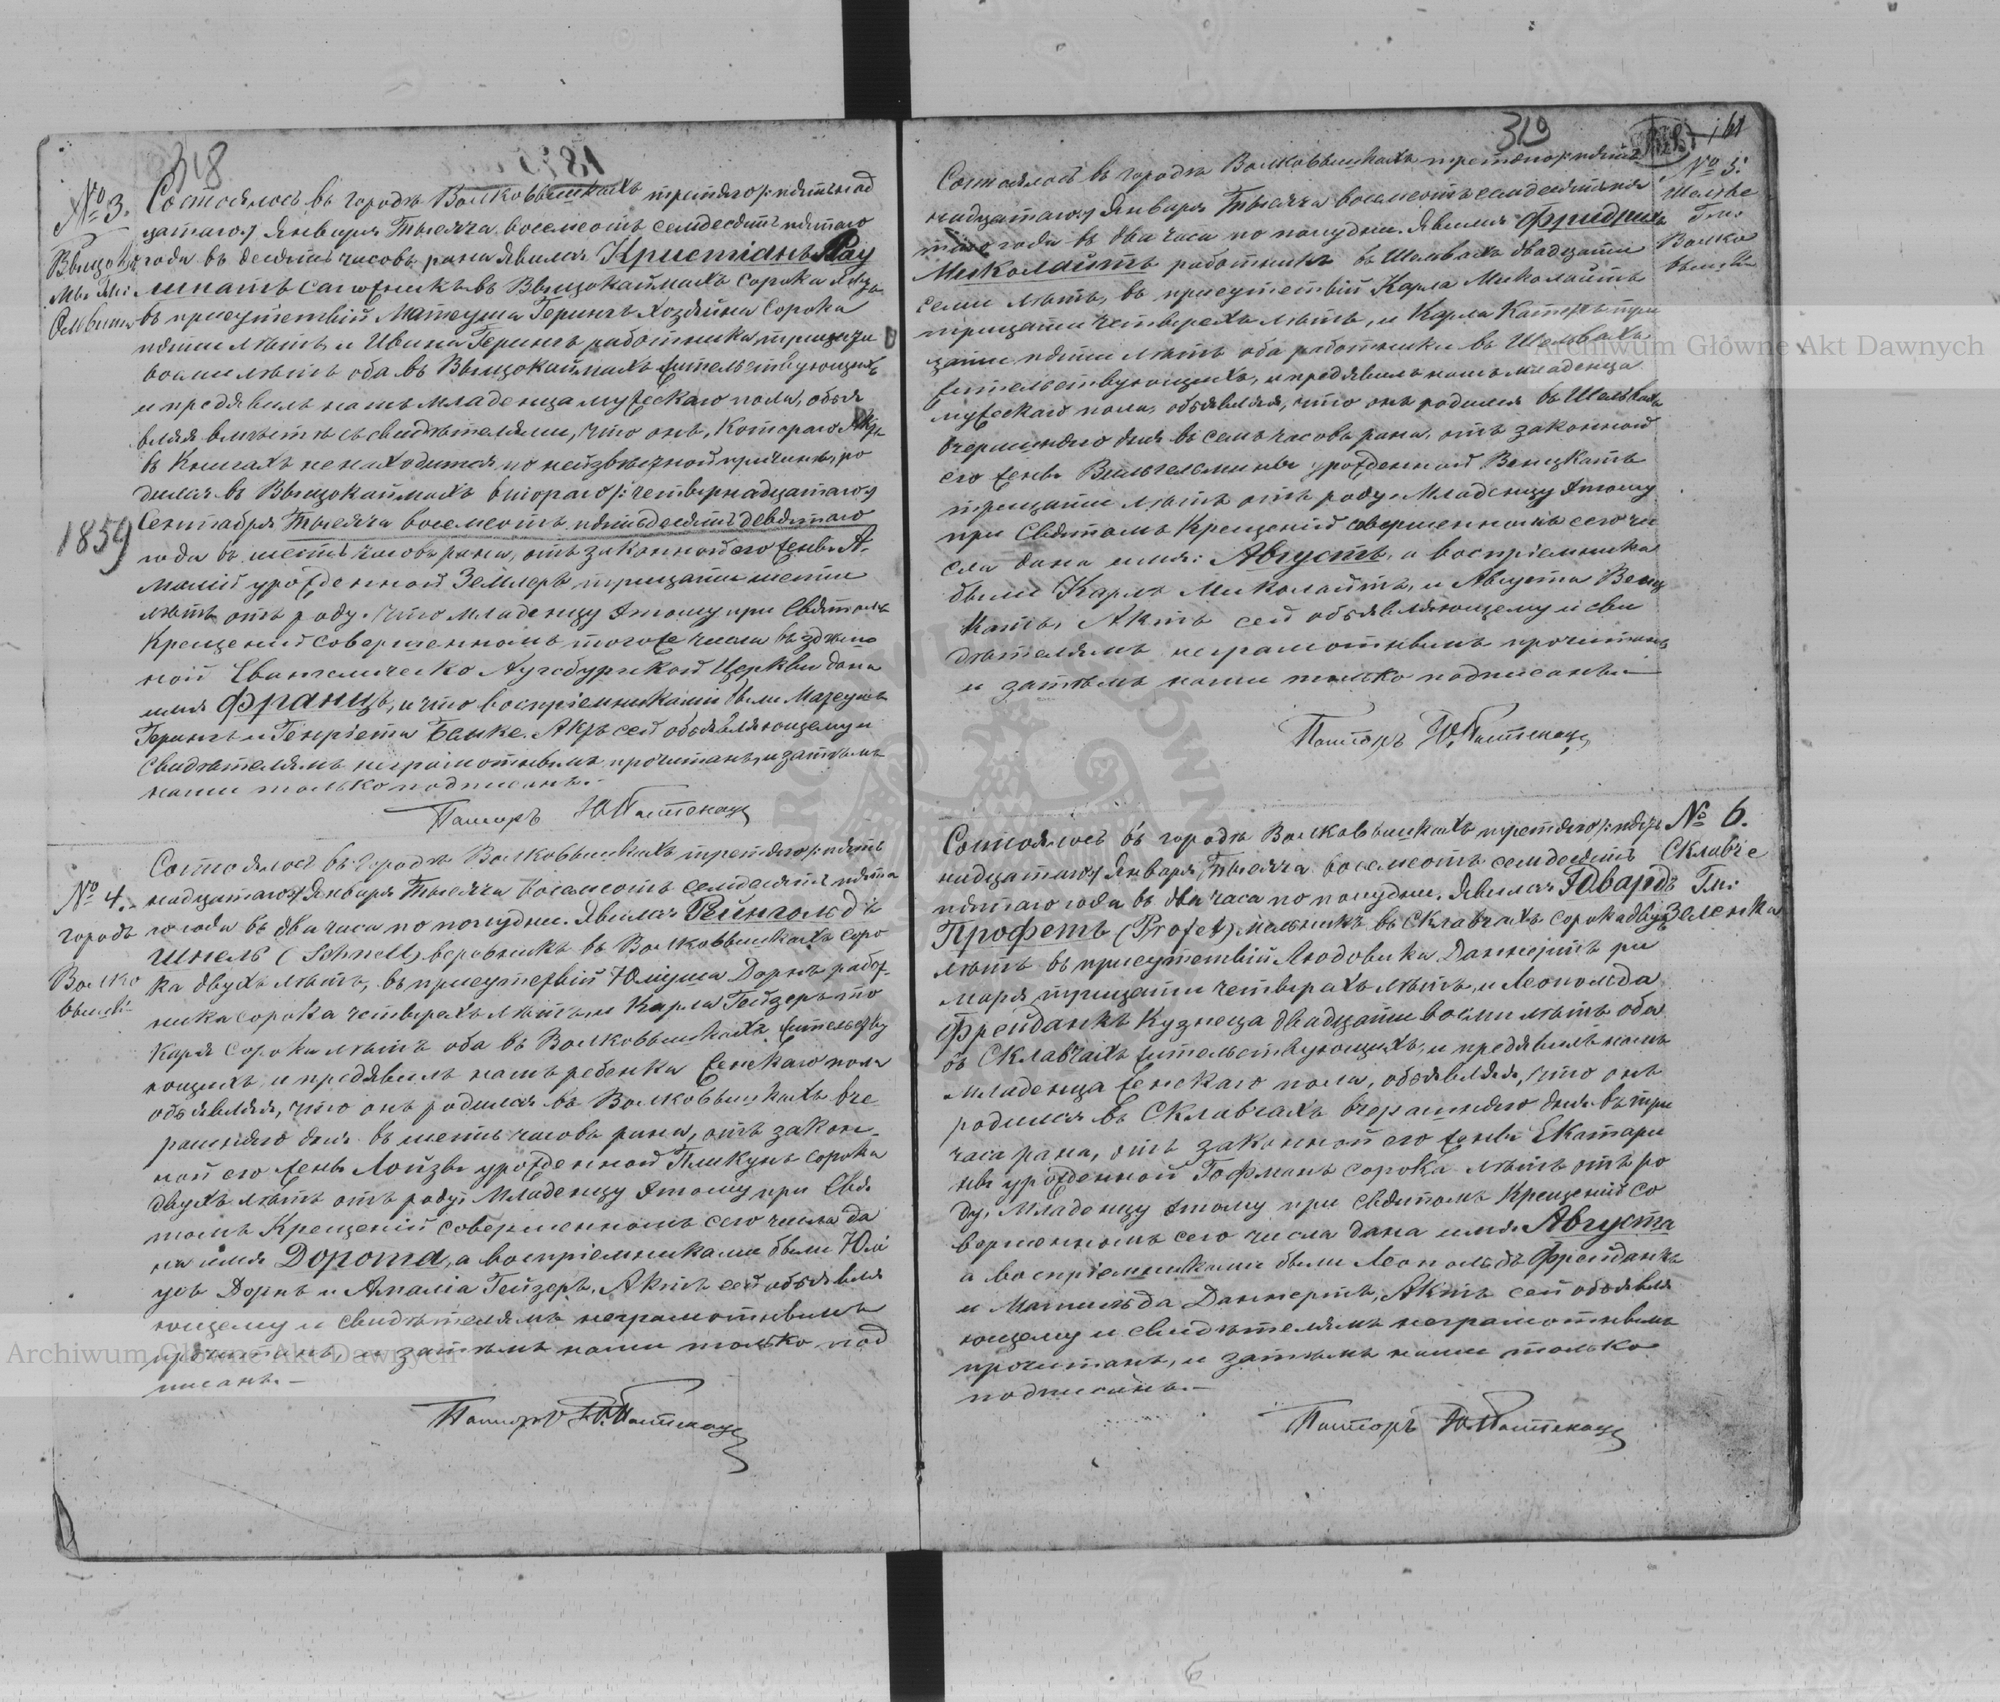 318
№ 3.
Состоялось въ городѣ Волковышкахъ третьяго/:пятьнад
цатаго:/ Января Тысяча восемсотъ семдесятъ пятаго
года въ десять часовъ рана. Явился Кристіанъ Рау
сапожникъ въ Выцокаймахъ сорока
въ присутствій Матеуша Герингъ хозяина сорока
пяти лѣтъ и Ивана Герингъ работника, тридцати
восми лѣтъ оба въ Выцокаймахъ жительствующихъ
и предявилъ намъ младенца мужескаго пола, объя
вляя вмѣстѣ съ свидѣтелями, что онъ, котораго Актъ
въ Книгахъ не находится, по неизвѣстной причинѣ, ро
дился въ Выцокаймахъ втораго/:четырнадцатаго:/
1859
Сентября Тысяча восемсотъ пятьдесятъ девятаго
года въ шесть часовъ рана, отъ законной его жены А
маліи урожденной Землеръ, тридцати шести
лѣтъ отъ роду. Что младенцу этому при Святомъ
Крещеніи совершенномъ того же числа въ здѣш
ной Евангелическо Аугсбургской Церкви дано
имя Францъ, и что воспріемниками были Матеушъ
Герингъ и Генріета Бемке. Актъ сей объявляющему и
Свидѣтелямъ неграмотнымъ прочитанъ, и затѣмъ
нами только подписанъ.-
Пасторъ
№ 4.
городъ
Волко
вышк:
Состоялось въ городѣ Волковышкахъ третьяго/:пять
надцатаго:/ Января Тысяча восемсотъ семдесятъ пята
го года въ два часа по полудни. Явился Рейнгольдъ
Шнель (Schnell) веровникъ въ Волковышкахъ соро
ка двухъ лѣтъ, въ присутствій Юліуша Дорнъ работ
ника сорока четырехъ лѣтъ и Карла Гейзеръ то
каря сорока лѣтъ оба въ Волковышкахъ жительству
ющихъ, и предявилъ намъ ребенка женскаго пола
объявляя, что онъ родился въ Волковышкахъ вче
рашняго дня въ шесть часовъ рана, отъ закон
ной его жены Лоизы урожденной Пликунъ сорока
двухъ лѣтъ отъ роду. Младенцу этому при Свя
томъ Крещеніи совершенномъ сего числа да
на имя Дорота, а воспріемниками были Юлі
усъ Дорнъ и Амалія Гейзеръ. Актъ сей объявля
ющему и свидѣтелямъ неграмотнымъ
прочитанъ, и затѣмъ нами только под
писанъ.-
Пасторъ
319
161
№ 5.
Состоялось въ городѣ Волковышкахъ третьяго/:пять
надцатаго:/ Января Тысяча восемсотъ семдесятъ пя
таго года въ два часа по полудни. Явился Фридрихъ
Миколайтъ работникъ въ Шельвахъ двадцати
семи лѣтъ, въ присутствій Карла Миколайтъ
тридцати четырехъ лѣтъ, и Карла
цати пяти лѣтъ оба работники въ Шельвахъ
жительствующихъ, и предявилъ намъ младенца
мужескаго пола, объявляя, что онъ родился въ Шельвахъ
вчерашняго дня въ семь часовъ рана, отъ законной
его жены Вильгельмины урожденной Венцкатъ
тридцати лѣтъ отъ роду. Младенцу этому
при Святомъ Крещеніи совершенномъ сего чи
сла дано имя: Августъ, а воспріемники
были Карлъ Миколайтъ, и Августа Венц
катъ. Актъ сей объявляющему и сви
дѣтелямъ неграмотнымъ прочитанъ
и затѣмъ нами только подписанъ.-
Пасторъ
№ 6.
Склавче
Гм:
Зеленка
Состоялось въ городѣ Волковышкахъ третьяго/:пять
надцатаго:/ Января Тысяча восемсотъ семдесятъ
пятаго года въ два часа по полудни. Явился Эдвардъ
Профетъ (Profet) мельникъ въ Склавчахъ сорока двухъ
лѣтъ въ присутствій Людовика Даннертъ ры
маря тридцати четырехъ лѣтъ, и Леопольда
Фрейданкъ кузнеца двадцати восми лѣтъ оба
въ Склавчахъ жительствующихъ, и предявилъ намъ
младенца женскаго пола, объявляя, что онъ
родился въ Склавчахъ вчерашняго дня въ три
часа рана, отъ законной его жены Екатари
ны урожденной Гофманъ сорока лѣтъ отъ ро
ду. Младенцу этому при святомъ Крещеніи со
вершенномъ сего числа дана имя Августа
а воспріемниками были Леопольдъ Фрейданкъ
и Матильда Даннертъ. Актъ сей объявля
ющему и свидѣтелямъ неграмотнымъ
прочитанъ, и затѣмъ нами только
подписанъ.-
Пасторъ
Archiwum Główne Akt Dawnych
Archiwum Główne Akt Dawnych